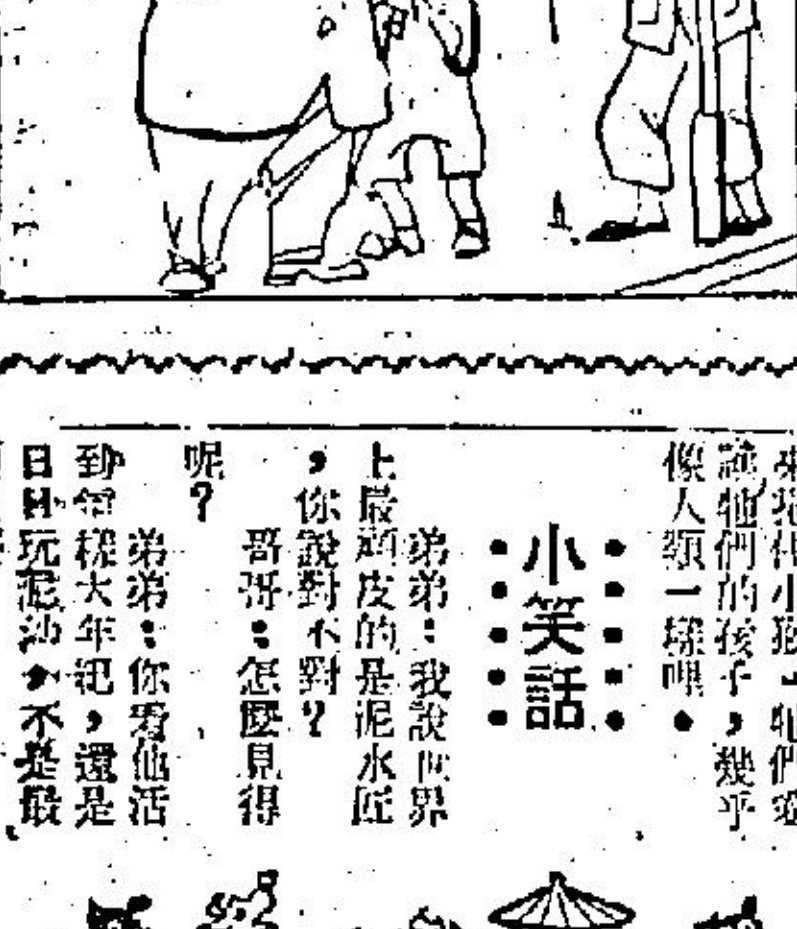 小孩，牠們
牠們的孩子，幾乎
像人類一樣哩。
小笑話
弟弟：我說世界
上最頑皮的是泥水匠
，你說對不對？
哥哥：怎麼見得
呢？
弟弟：你看他活
到這樣大年紀，還是
日日玩泥沙，不是最